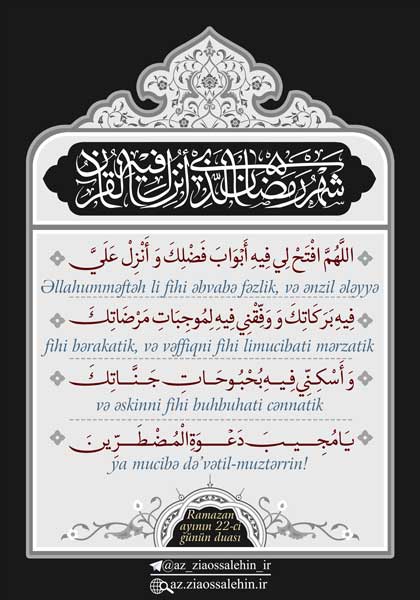 شَهْرُ رَمَضَانَ الَّذِي أُنْزِلَ فِيهِ الْقُرْآنُ
اللَّهُمَّ افْتَحْ لِي فِيهِ أَبْوَابَ فَضْلِكَ وَ أَنْزِلْ عَلَيَّ
Əllahummǝftǝh li fihi ǝbvabǝ fǝzlik, vǝ ǝnzil ǝlǝyyǝ
فِيهِ بَرَكَاتِكَ وَ وَفِّقْنِي فِيهِ لِمُوجِبَاتِ مَرْضَاتِكَ
fihi bǝrakatik, vǝ vǝffiqni fihi limucibati mǝrzatik
وَ أَسْكِنِّي فِيهِ بُحْبُوحَاتِ جَنَّاتِكَ
vǝ ǝskinni fihi buhbuhati cǝnnatik
يَا مُجِيبَ دَعْوَةِ الْمُضْطَرِّينَ
ya mucibǝ dǝ’vǝtil-muztǝrrin!
Ramazan
ayının 22-ci
günün duası
@az_ziaossalehin_ir
az.ziaossalehin.ir